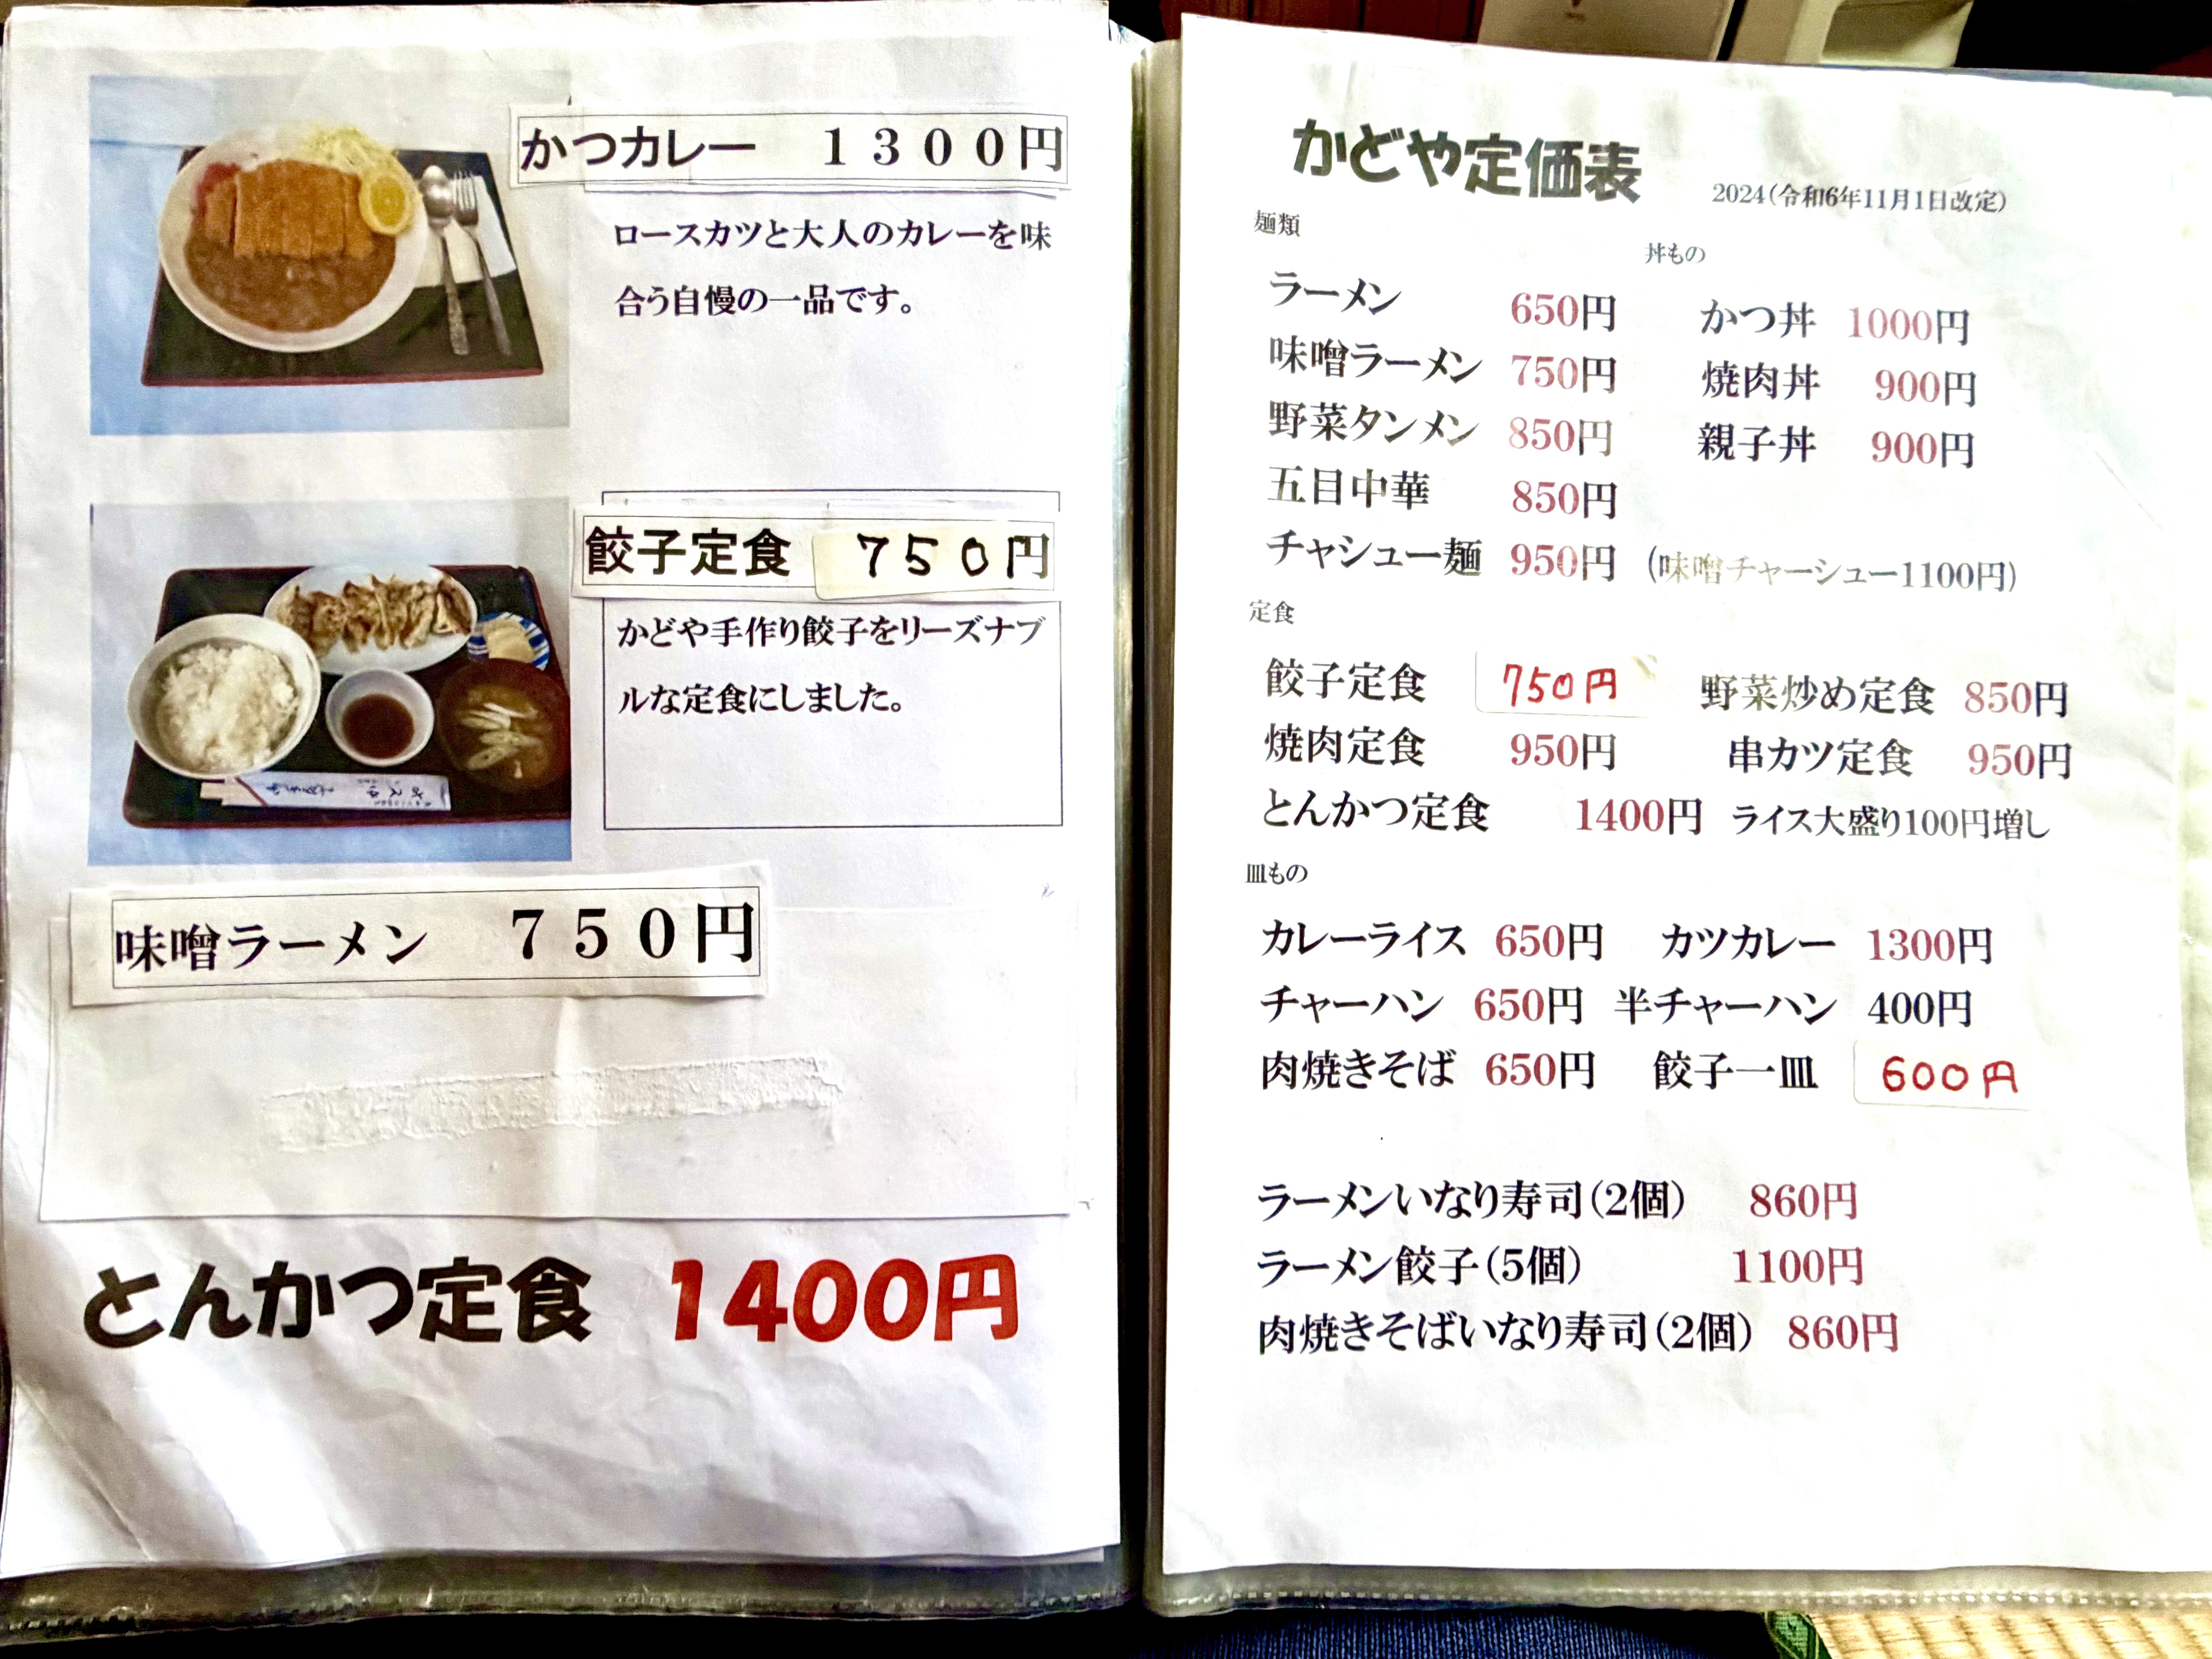 かつカレー　１３００円
ロースカツと大人のカレーを味
合う自慢の一品です。
餃子定食　７５０円
かどや手作り餃子をリーズナブ
ルな定食にしました。
味噌ラーメン　７５０円
とんかつ定食　1400円
かどや定価表　2024(令和6年11月1日改定)
麺類　丼もの
ラーメン　650円　かつ丼　1000円
味噌ラーメン　750円　焼肉丼　900円
野菜タンメン　850円　親子丼　900円
五目中華　850円
チャシュー麺　950円　(味噌チャーシュー1100円)
定食
餃子定食　750円　野菜炒め定食　850円
焼肉定食　950円　串カツ定食　950円
とんかつ定食　1400円　ライス大盛り100円増し
皿もの
カレーライス　650円　カツカレー　1300円
チャーハン　650円　半チャーハン　400円
肉焼きそば　650円　餃子一皿　600円
ラーメンいなり寿司(2個)　860円
ラーメン餃子(5個)　1100円
肉焼きそばいなり寿司(2個)　860円